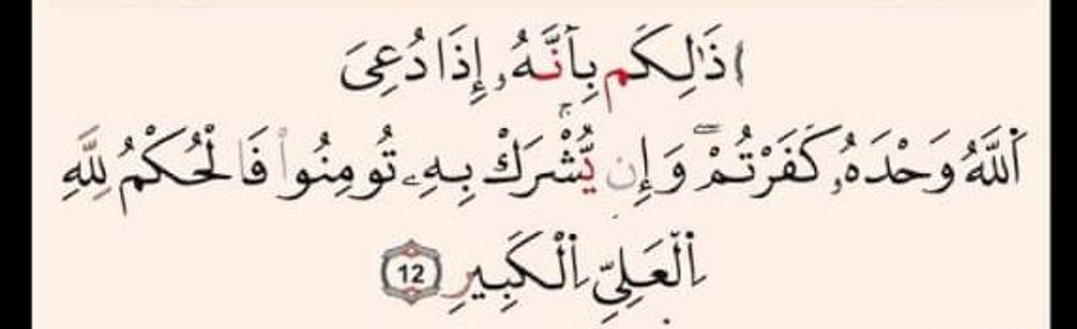 ذَٰلِكُم بِأَنَّهُۥ إِذَا دُعِىَ
اَ۬للَّهُ وَحْدَهُۥ كَفَرْتُمْۖ وَإِن يُّشْرَكْ بِهِۦ تُومِنُواْ فَالْحُكْمُ لِلَّهِ
اِ۬لْعَلِيِّ اِ۬لْكَبِيرِ 12